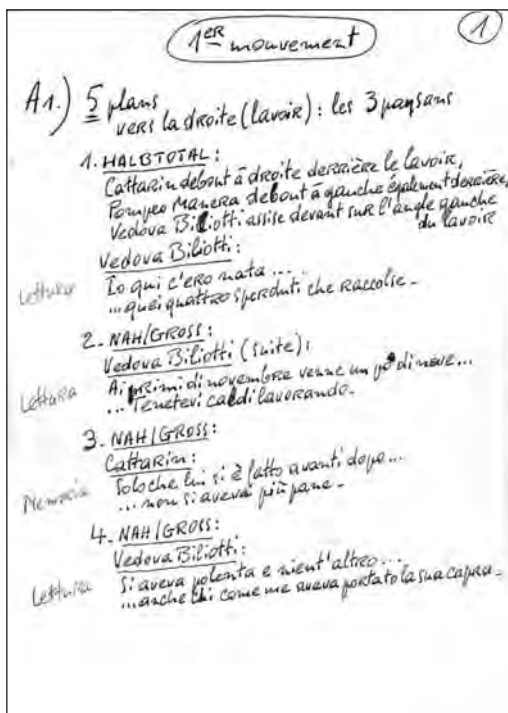 1ER mouvement
1
A1.) 5 plans
vers la droite (lavoir) : les 3 paysans
1. HALBTOTAL :
Cattarin debout à droite derrière le lavoir,
Pompeo Manera debout à gauche également derrière,
Vedova Biliotti assise devant sur l'angle gauche
du lavoir
Vedova Biliotti :
Io qui c'ero nata ...
Lettura ... quei quattro sperduti che raccolse -
2. NAH/GROSS :
Vedova Biliotti (suite) :
Ai primi di novembre venne un po' di neve ...
Lettura ... Tenetevi caldi lavorando.
3. NAH/GROSS :
Cattarin :
Solo che lui si è fatto avanti dopo ...
Memoria ... non si aveva più pane -
4. NAH/GROSS :
Vedova Biliotti :
Si aveva polenta e nient'altro ...
Lettura ... anche chi come me aveva portato la sua capra -